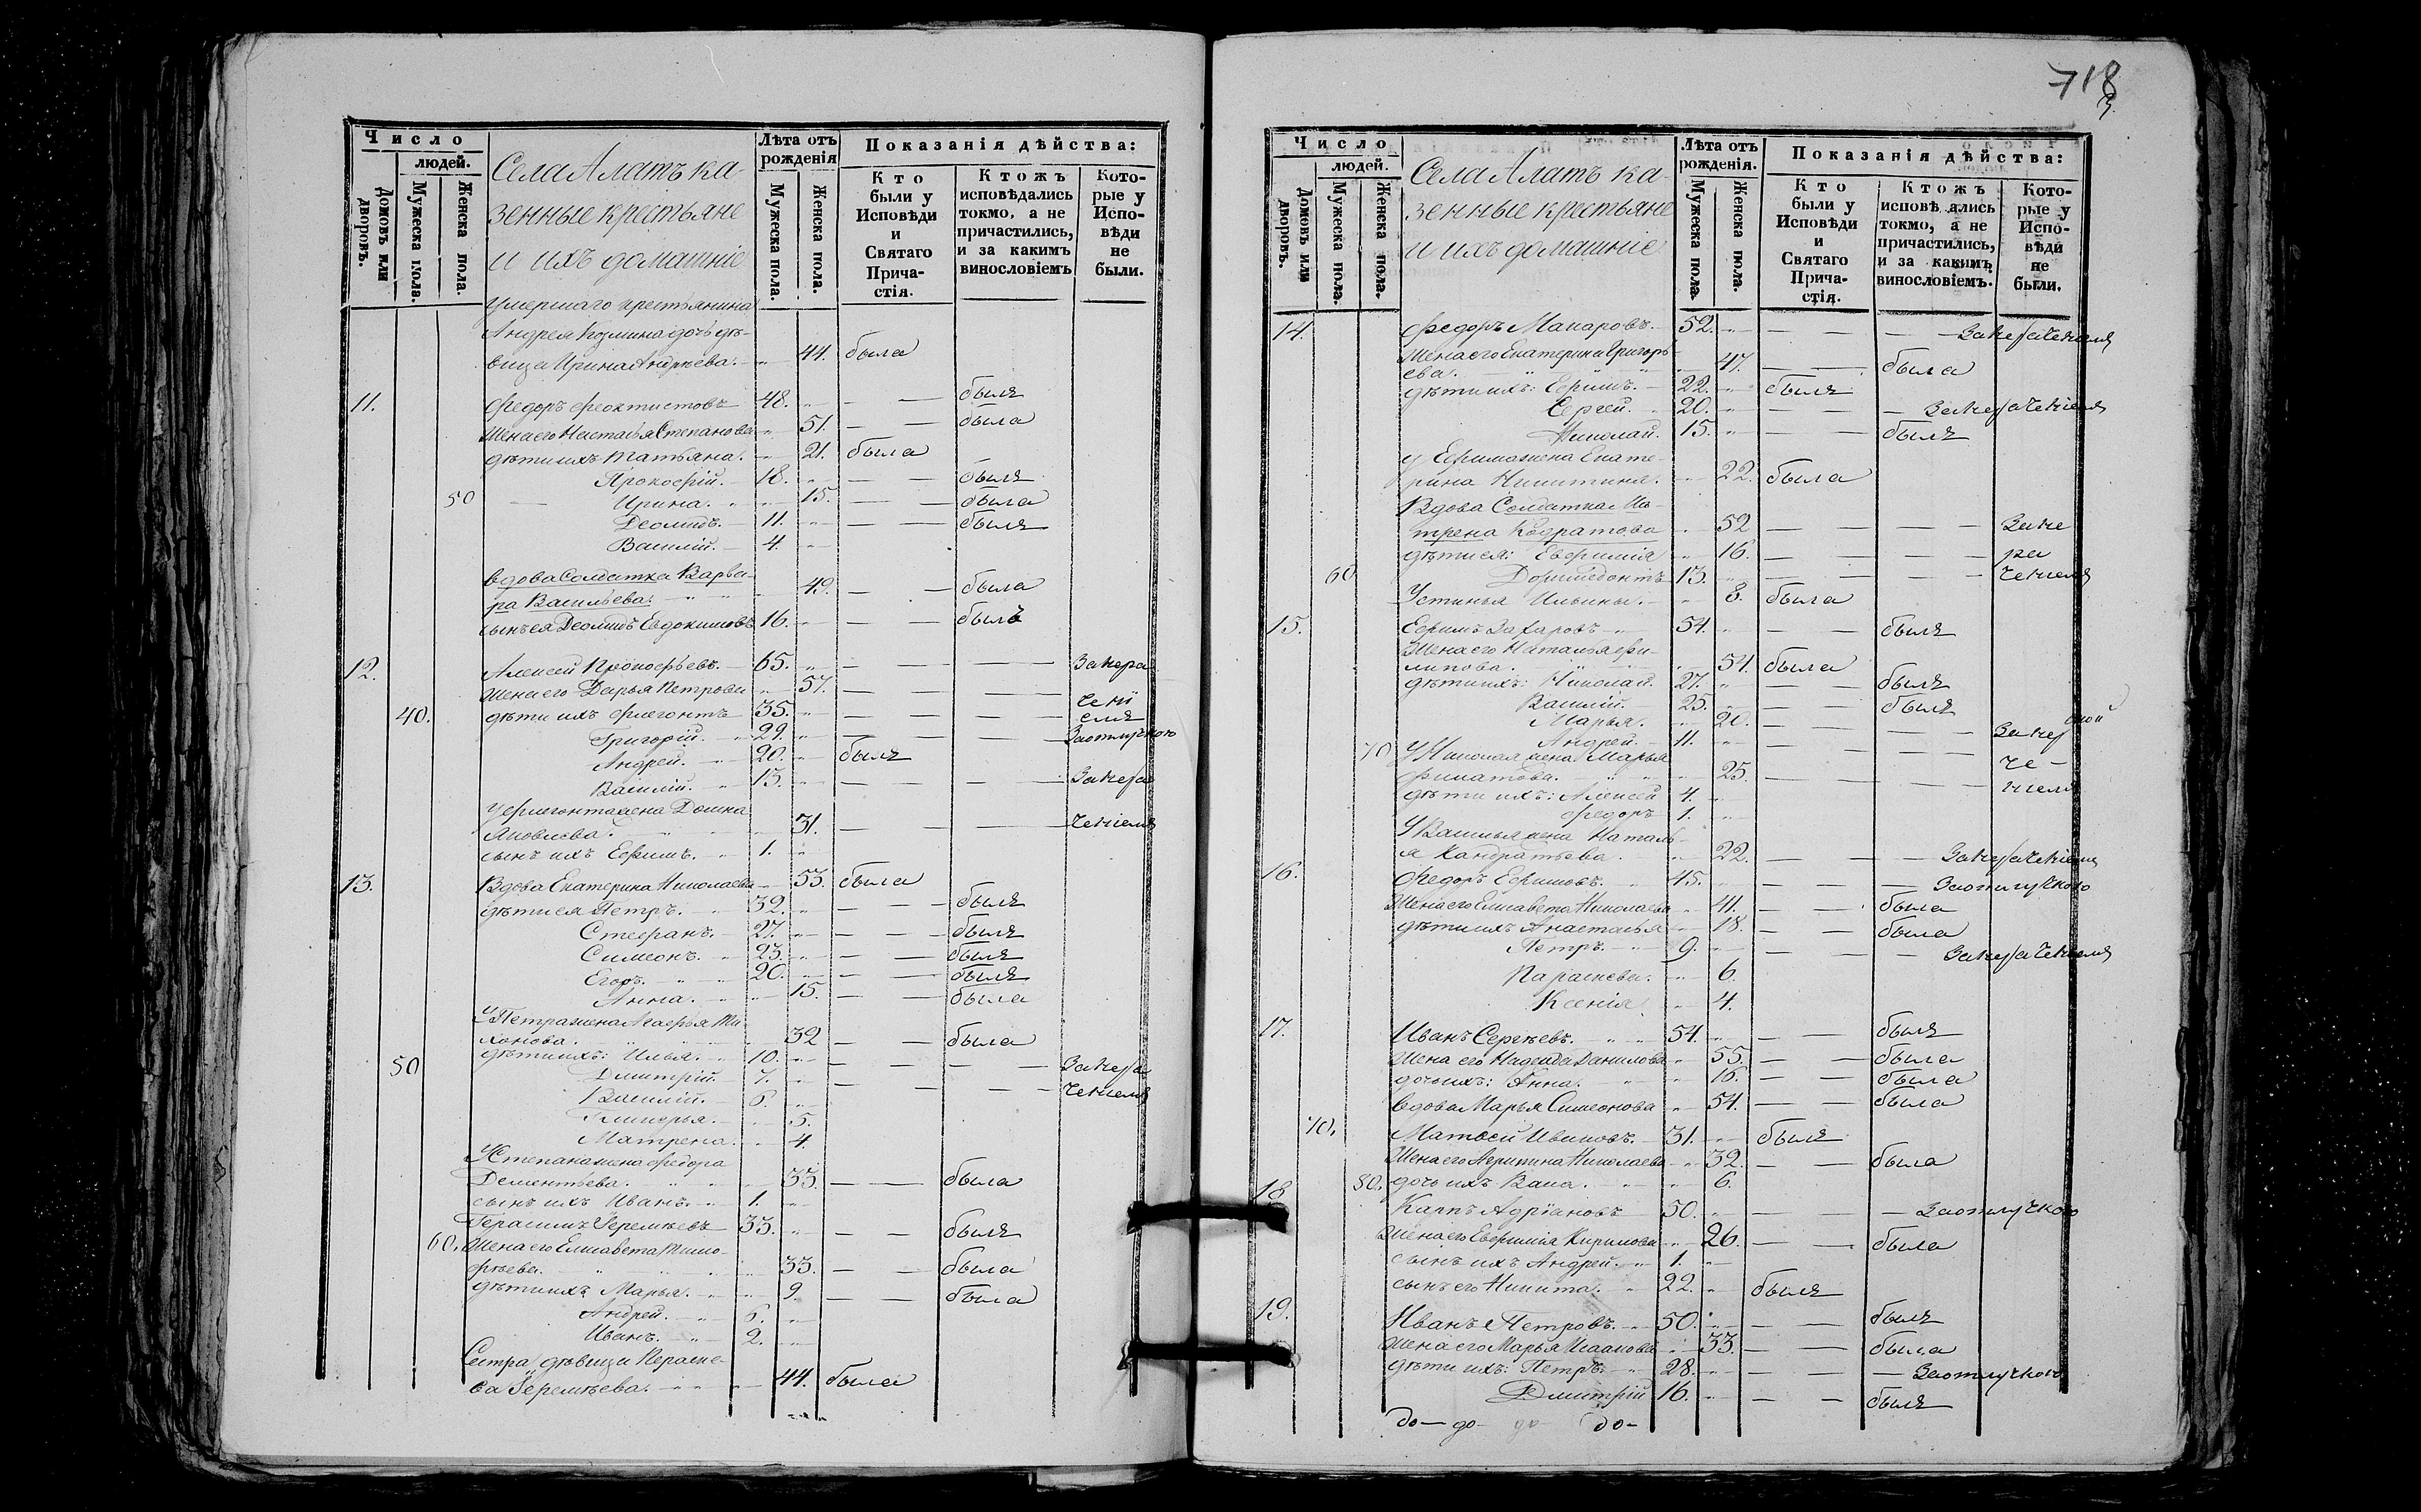 Число
людей.
Домовъ или дворовъ.
Мужеска пола.
Женска пола.
Села Алатъ ка-
зенные крестьяне
и ихъ домашніе
Лѣта отъ рожденія
Мужеска пола.
Женска пола.
Показанія дѣйства:
Кто были у Исповѣди и Святаго Прича-стія.
Ктожъ исповѣдались токмо, а не причастились, и за какимъ винословіемъ
Кото-рые у Испо-вѣди не были.
Умершаго крестьянина
Андрея Козмина дочь дѣ-
вица Ирина Андреева. 44. была
11. Федоръ Феоктистовъ 48. былъ
Жена его Настасья Степанова 51. была
дѣти ихъ Татьяна. 21. была
Прокофій. 18. былъ
50 Ирина. 15. была
Деомидъ. 11. былъ
Василій. 4.
вдова Солдатка Варва-
ра Васильева. 49. была
сынъ ея Деомидъ Евдокимовъ 16. былъ
12. Алексей Прокофьевъ. 65. За нера
Жена его Дарья Петрова 57. чені
40. дѣти ихъ Флегонтъ 35. емъ
Григорій. 29. За отлучкою
Андрей. 20. былъ
Василій. 13. За нера
У Флегонта жена Домна
Яковлева. 31. ченіемъ
сынъ ихъ Ефимъ. 1.
13. Вдова Екатерина Николаева 53. была
дѣти ея Петръ. 32. былъ
Стефанъ. 27. былъ
Симеонъ. 23. былъ
Егоръ. 20. былъ
Анна. 15. была
У Петра жена Агафья Ти-
хонова. 32 была
50 дѣти ихъ: Илья. 10. За нера
Дмитрій. 7. ченіемъ
Василій. 6.
Гликерья. 5.
Матрена. 4.
У Степана жена Федора
Дементьева. 33. была
сынъ ихъ Иванъ. 1.
Герасимъ Еремѣевъ 33. былъ
60. Жена его Елисавета Тимо-
фѣева. 33. была
дѣти ихъ Марья. 9. была
Андрей. 6.
Иванъ. 2.
Сестра дѣвица Параске-
ва Еремѣева. 44. была
718
Число
людей.
Домовъ или дворовъ.
Мужеска пола.
Женска пола.
Села Алатъ ка-
зенные крестьяне
и ихъ домашніе
Лѣта отъ рожденія.
Мужеска пола
Женска пола.
Показанія дѣйства:
Кто были у Исповѣди и Святаго Прича-стія.
Ктожъ исповѣ ались токмо, а не причастились, и за какимъ винословіемъ.
Кото-рые у Испо-вѣди не были.
14. Федоръ Макаровъ. 52. За нераченіемъ
Жена его Екатерина Григорь-
ева. 47. была
дѣти ихъ: Ефимъ. 22. былъ
Сергей. 20. За нераченіемъ
Николай. 15. былъ
у Ефима жена Екате-
рина Никитина. 22. была
Вдова Солдатка Ма-
трена Кодратова 52 За не
дѣти ея: Евфимія 16. ра
60 Доримедонтъ 13. ченіемъ
Устинья Ильина. 8. была
15. Ефимъ Захаровъ 54. былъ
Жена его Наталья Фи-
липова. 54. была
дѣти ихъ: Николай. 27. былъ
Василій. 25. былъ
Марья. 20. За нер
Андрей. 11.
70 У Николая жена Марья че-
Филатова. 25. ніемъ
дѣти ихъ: Алексей 4.
Федоръ 1.
У Василья жена Наталь-
я Кандратьева. 22. За нераченіемъ
16. Федоръ Ефимовъ. 45. За отлучкою
Жена его Елисавета Николаева 41. была
дѣти ихъ Анастасья 18. была
Петръ. 9. За нераченіемъ
Параскева. 6.
Ксенія 4.
17. Иванъ Сергѣевъ. 54. былъ
Жена его Надежда Данилова 55. была
дочь ихъ: Анна. 16. была
вдова Марья Симеонова 54. была
70. Матвей Ивановъ. 31. былъ
Жена его Агрипина Николаева 32. была
80. дочь ихъ Васа. 6.
18 Карпъ Адріановъ 50. За отлучкою
Жена его Евфимія Кирилова 26. была
сынъ ихъ Андрей. 1.
сынъ его Никита. 22. былъ
19. Иванъ Петровъ. 50. былъ
Жена его Марья Исаакова 33. была
дѣти ихъ: Петръ. 28. За отлучкою
Дмитрій 16. былъ
до- до- до- до-